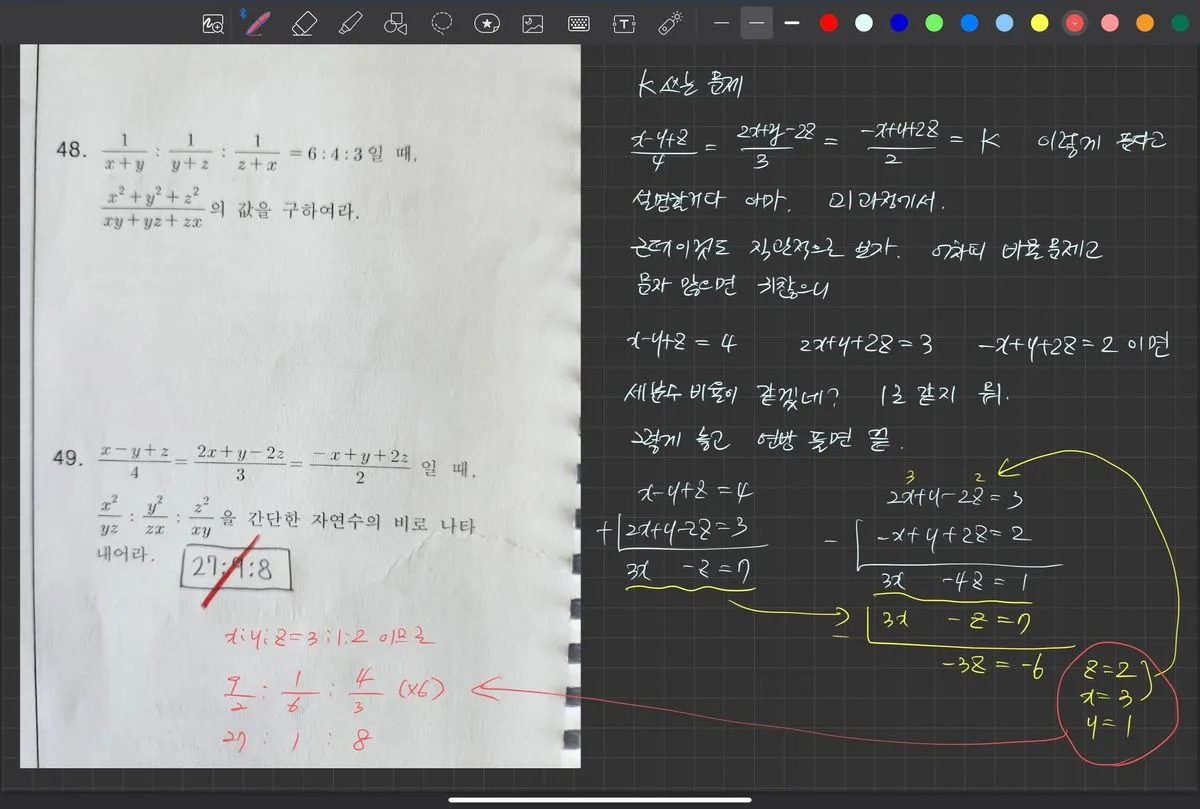 48. 1/(x+y) : 1/(y+z) : 1/(z+x) = 6 : 4 : 3 일 때,
(x²+y²+z²)/(xy+yz+zx) 의 값을 구하여라.
49. (x-y+z)/4 = (2x+y-2z)/3 = (-x+y+2z)/2 일 때,
x²/yz : y²/zx : z²/xy 을 간단한 자연수의 비로 나타
내어라.
27:9:8
x:y:z=3:1:2 이므로
9/2 : 1/6 : 4/3 (×6)
27 : 1 : 8
K 쓰는 문제
(x-y+z)/4 = (2x+y-2z)/3 = (-x+y+2z)/2 = K 이렇게 푼다고
설명할거다 아마. 고1과정에서.
근데 이것도 직관적으로 보자. 어차피 비율문제고
문자 많으면 귀찮으니
x-y+z = 4 2x+y+2z = 3 -x+y+2z = 2 이면
세분수 비율이 같겠네? 1로 같지 뭐.
그렇게 놓고 연방 풀면 끝.
x-y+z = 4
+ 2x+y-2z = 3
3x -z = 7
3 2
2x+y-2z = 3
- -x+y+2z = 2
3x -4z = 1
- 3x -z = 7
-3z = -6
z=2
x=3
y=1